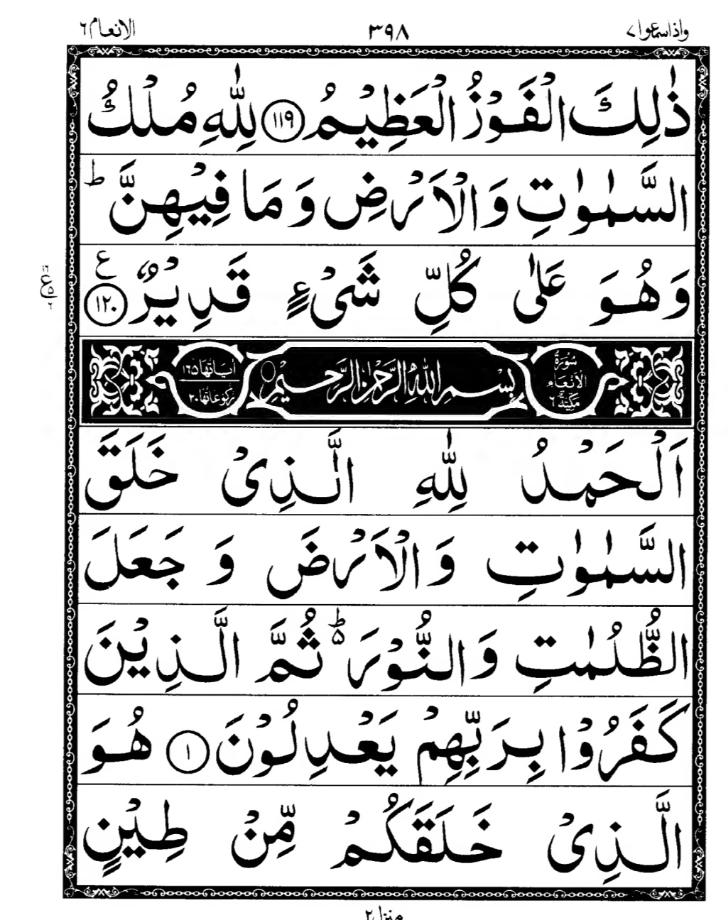 واذاسمعوا ٧ ٣٩٨ الانعام ٦
ذٰلِكَ الْفَوْزُ الْعَظِيْمُ ١١٩ لِلّٰهِ مُلْكُ
السَّمٰوٰتِ وَالْاَرْضِ وَمَا فِيْهِنَّ ؕ
وَهُوَ عَلٰى كُلِّ شَىْءٍ قَدِيْرٌ ١٢٠ ع
سُوْرَةُ الْاَنْعَامِ مَكِّيَّةٌ ٦ بِسْمِ اللّٰهِ الرَّحْمٰنِ الرَّحِيْمِ اٰيَاتُهَا ١٦٥ رُكُوْعَاتُهَا ٢٠
اَلْحَمْدُ لِلّٰهِ الَّذِىْ خَلَقَ
السَّمٰوٰتِ وَالْاَرْضَ وَ جَعَلَ
الظُّلُمٰتِ وَالنُّوْرَ ؕ ثُمَّ الَّذِيْنَ
كَفَرُوْا بِرَبِّهِمْ يَعْدِلُوْنَ ١ هُوَ
الَّذِىْ خَلَقَكُمْ مِّنْ طِيْنٍ
منزل ٢